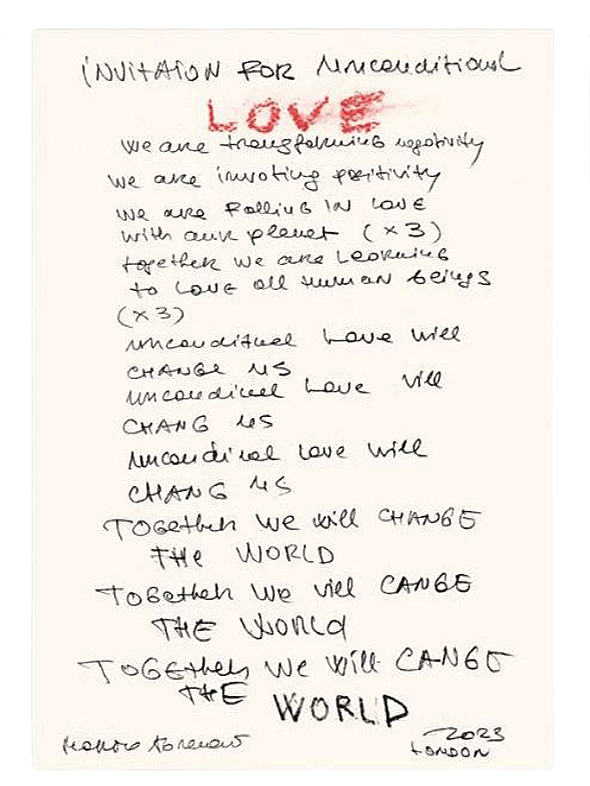 INVITAION FOR Unconditional
LOVE
We are transforming negativity
We are invoting positivity
We are FALLING IN LOVE
with our planet (x3)
together we are LEARNING
to LOVE all HUMAN beings
(x3)
unconditunal Love will
CHANGE US
uncondinal Love will
CHANG US
uncondinal Love will
CHANG US
TOGether We will CHANGE
THE WORLD
TOGether We vill CANGE
THE WORLD
TOGether We will CANGE
THE WORLD
2023
LONDON